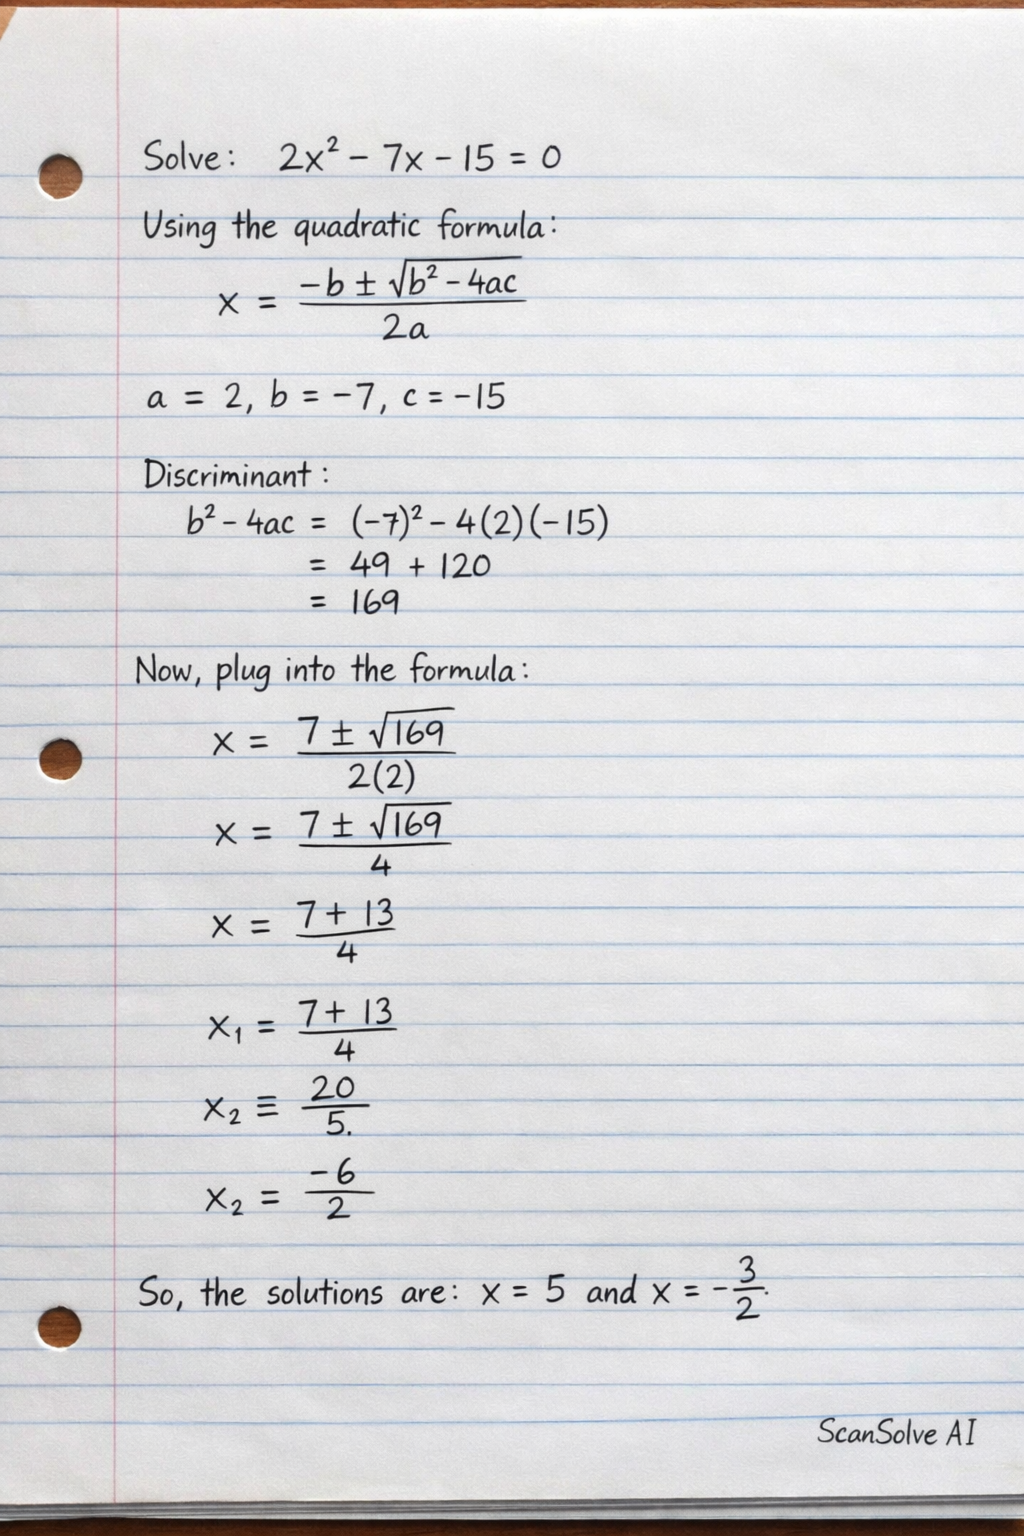 Solve: 2x² - 7x - 15 = 0
Using the quadratic formula:
x = (-b ± √(b² - 4ac)) / 2a
a = 2, b = -7, c = -15
Discriminant:
b² - 4ac = (-7)² - 4(2)(-15)
= 49 + 120
= 169
Now, plug into the formula:
x = (7 ± √169) / 2(2)
x = (7 ± √169) / 4
x = (7 + 13) / 4
x₁ = (7 + 13) / 4
x₂ ≡ 20 / 5.
x₂ = -6 / 2
So, the solutions are: x = 5 and x = -3/2.
ScanSolve AI